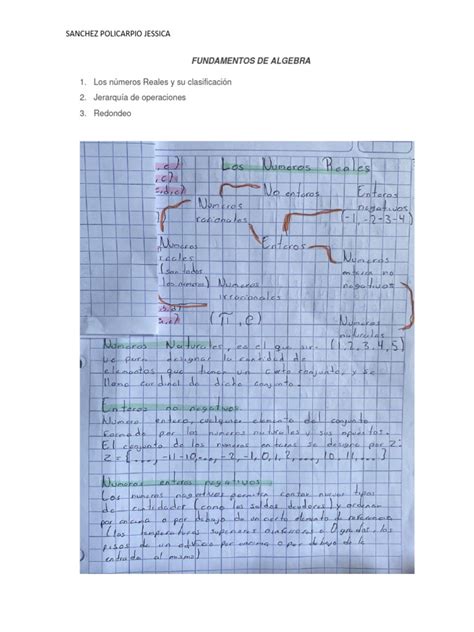 SANCHEZ POLICARPIO JESSICA
FUNDAMENTOS DE ALGEBRA
1. Los números Reales y su clasificación
2. Jerarquía de operaciones
3. Redondeo
Los Numeros Reales
No enteros
Enteros negativos
(-1, -2-3-4)
Numeros racionales
Enteros
Numeros reales
(son todos los numeros)
Numeros enteros no negativos
Numeros irracionales
(π, e)
Numeros naturales
(1, 2, 3, 4, 5)
Numeros Naturales, es el que sir-
ve para designar la cantidad de
elementos que tienen un cierto conjunto, y se
llama cardinal de dicho conjunto.
Enteros no negativos
Numero entero, cualquier elemento del conjunto
formado por los numeros naturales y sus opuestos.
El conjunto de los numeros enteros se designa por Z:
Z = {..., -11 -10, ..., -2, -1, 0, 1, 2, ..., 10, 11, ...}
Numeros enteros negativos
Los numeros negativos permiten contar nuevos tipos
de cantidades (como los saldos deudores) y ordenar
por encima o por debajo de un cierto elemento de referencia
(las temperaturas superiores o inferiores a 0 grados, los
pisos de un edificio por encima o por debajo de la
entrada al mismo)